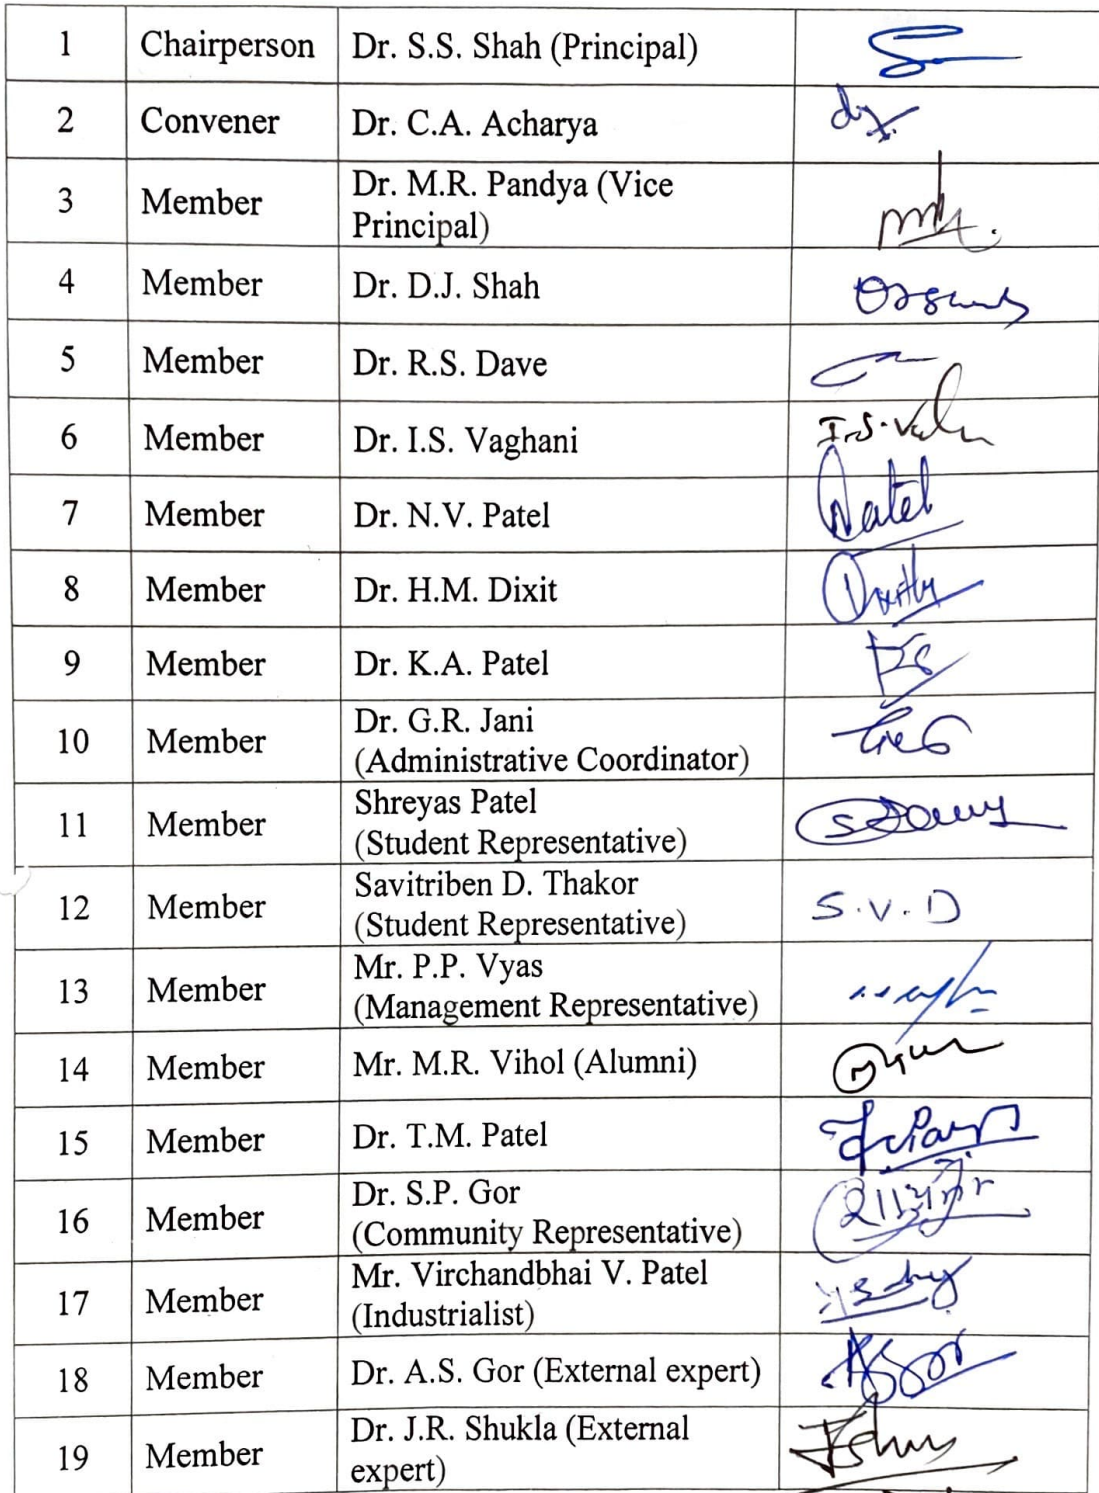 1 Chairperson Dr. S.S. Shah (Principal)
2 Convener Dr. C.A. Acharya
3 Member Dr. M.R. Pandya (Vice
Principal)
4 Member Dr. D.J. Shah
5 Member Dr. R.S. Dave
6 Member Dr. I.S. Vaghani I.S.
7 Member Dr. N.V. Patel Patel
8 Member Dr. H.M. Dixit
9 Member Dr. K.A. Patel
10 Member Dr. G.R. Jani
(Administrative Coordinator)
11 Member Shreyas Patel
(Student Representative)
12 Member Savitriben D. Thakor
(Student Representative) S.V.D
13 Member Mr. P.P. Vyas
(Management Representative)
14 Member Mr. M.R. Vihol (Alumni)
15 Member Dr. T.M. Patel
16 Member Dr. S.P. Gor
(Community Representative)
17 Member Mr. Virchandbhai V. Patel
(Industrialist)
18 Member Dr. A.S. Gor (External expert)
19 Member Dr. J.R. Shukla (External
expert)